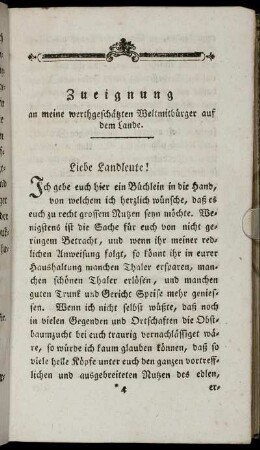 Zueignung
an meine werthgeschätzten Weltmitbürger auf
dem Lande.
Liebe Landleute!
Ich gebe euch hier ein Büchlein in die Hand,
von welchem ich herzlich wünsche, daß es
euch zu recht grossem Nutzen seyn möchte. We-
nigstens ist die Sache für euch von nicht ge-
ringem Betracht, und wenn ihr meiner red-
lichen Anweisung folgt, so könnt ihr in eurer
Haushaltung manchen Thaler ersparen, man-
chen schönen Thaler erlösen, und manchen
guten Trunk und Gericht Speise mehr genies-
sen. Wenn ich nicht selbst wüßte, daß noch
in vielen Gegenden und Ortschaften die Obst-
baumzucht bei euch traurig vernachlässiget wä-
re, so würde ich kaum glauben können, daß so
viele helle Köpfe unter euch den ganzen vortreff-
lichen und ausgebreiteten Nutzen des edlen,
* 4 er-